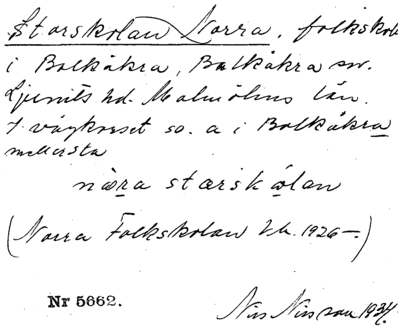 Storskolan Norra, folkskola
i Balkåkra, Balkåkra sn.
Ljunits hd. Malmöhus län.
I vägkorset so. a i Balkåkra
mellersta
nɷra storskɷlan
(Norra Folkskolan 1926–.)
Nr 5662.
Nils Nilsson 1934.